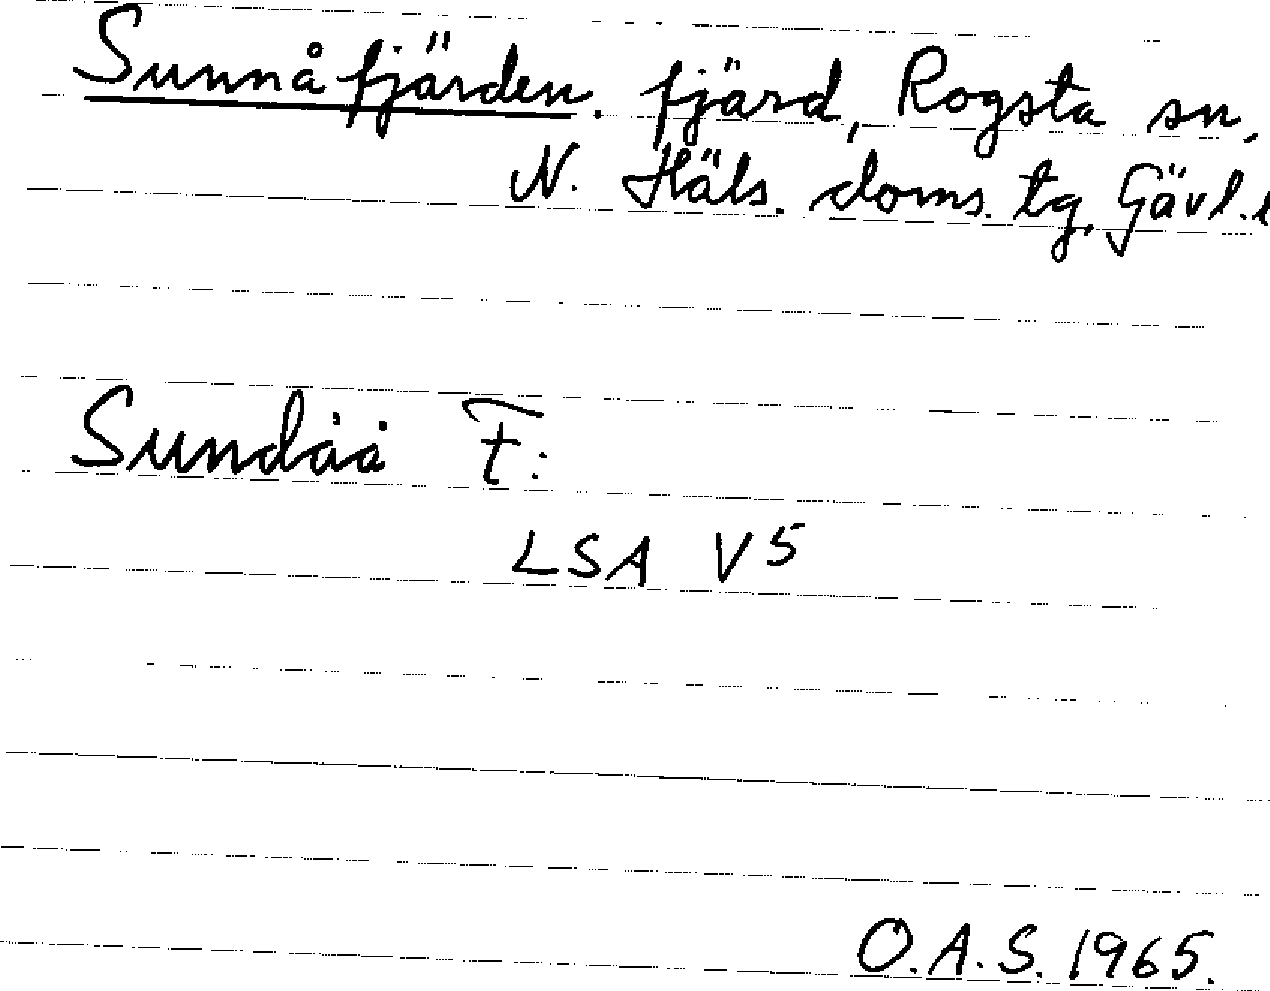 Sunnåfjärden. fjärd, Rogsta sn,
N. Häls. doms. tg, Gävl. l
Sundåå F:
LSA V5
O.A.S. 1965.